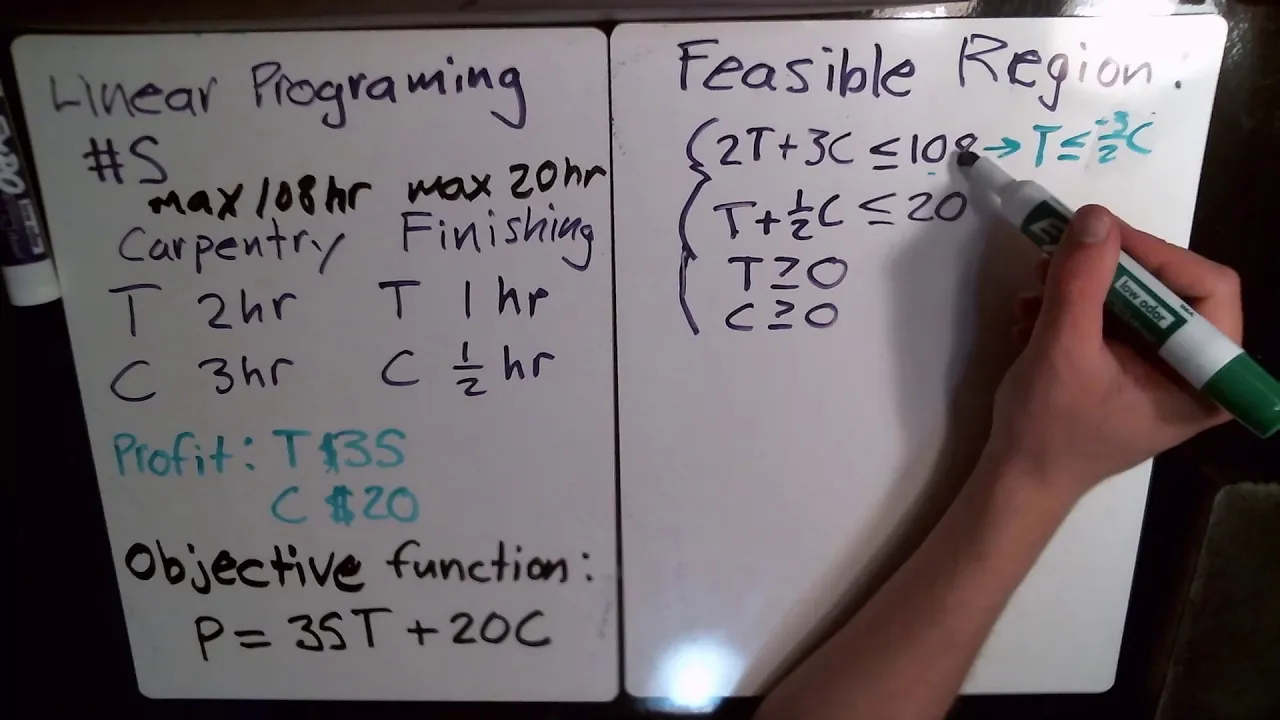 Linear Programing
#5
max 108hr max 20hr
Carpentry Finishing
T 2hr T 1hr
C 3hr C 1/2 hr
Profit: T $35
C $20
Objective function:
P = 35T + 20C
Feasible Region:
2T+3C ≤ 108 → T ≤ -3/2 C
T+1/2C ≤ 20
T ≥ 0
C ≥ 0
low odor